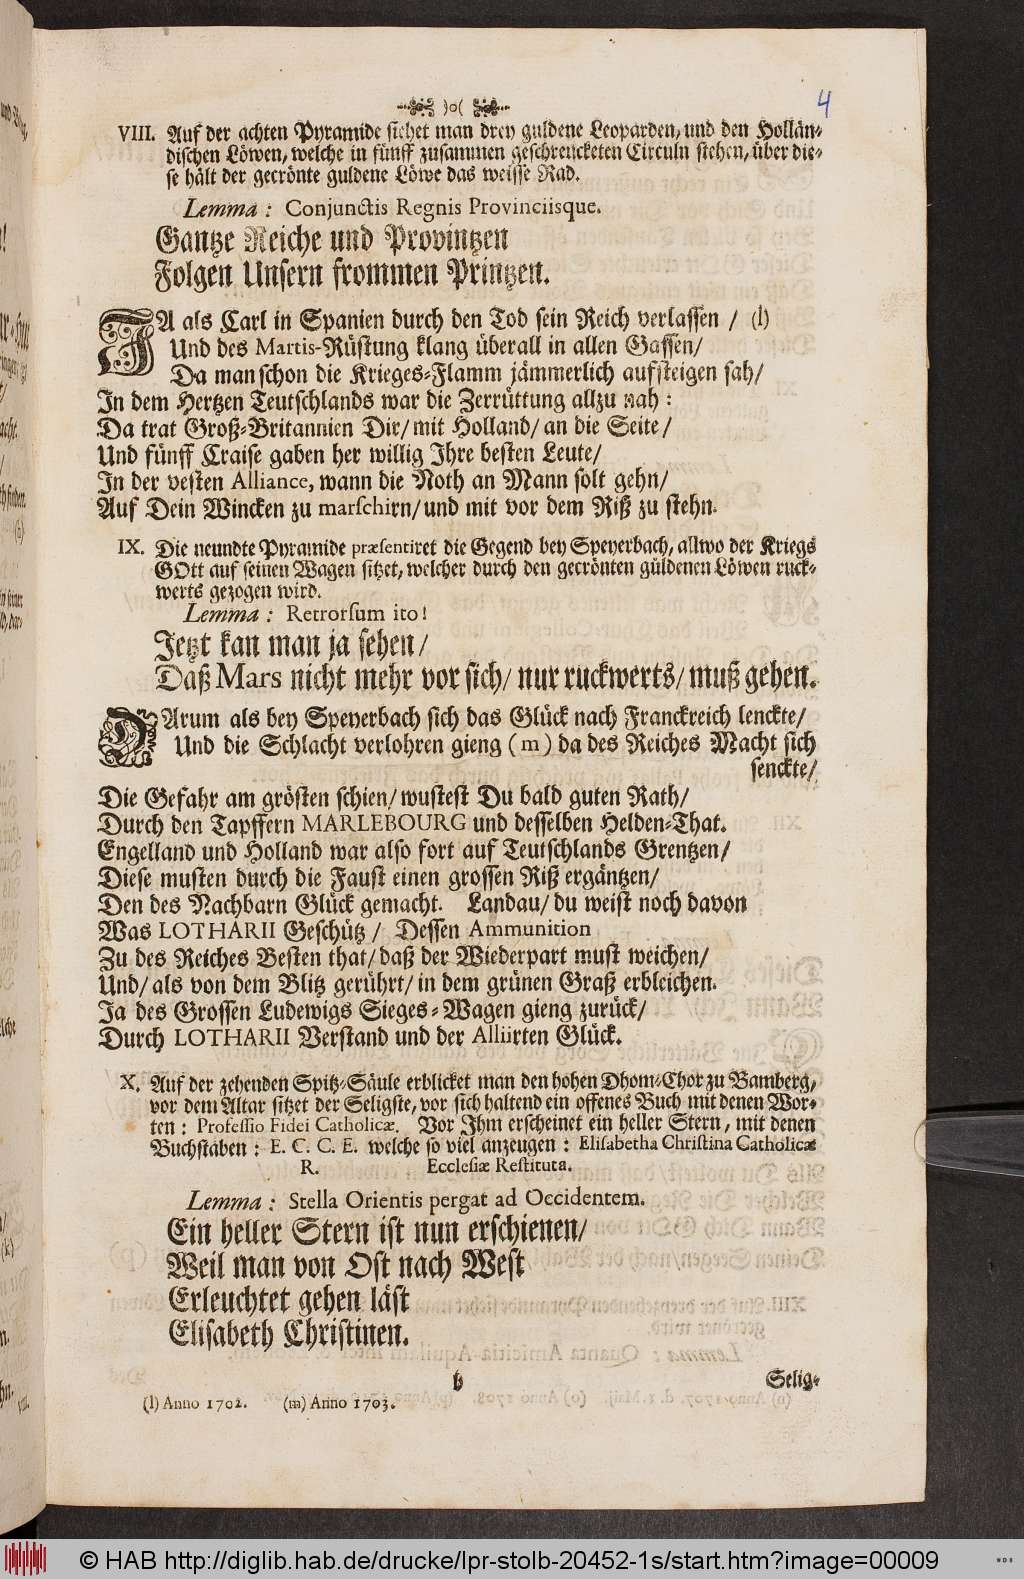 )o(
4
VIII. Auf der achten Pyramide siehet man drey guldene Leoparden, und den Hollän-
dischen Löwen, welche in fünff zusammen geschrenckten Circuln stehen, über die-
se hält der gecrönte guldene Löwe das weisse Rad.
Lemma: Conjunctis Regnis Provinciisque.
Gantze Reiche und Provintzen
Folgen Unsern frommen Printzen.
JA als Carl in Spanien durch den Tod sein Reich verlassen / (l)
Und des Martis-Rüstung klang überall in allen Gassen/
Da man schon die Krieges-Flamm jämmerlich aufsteigen sah/
In dem Hertzen Teutschlands war die Zerrüttung allzu nah:
Da trat Groß-Britannien Dir/ mit Holland/ an die Seite/
Und fünff Craise gaben her willig Ihre besten Leute/
In der vesten Alliance, wann die Noth an Mann solt gehn/
Auf Dein Wincken zu marschirn/ und mit vor dem Riß zu stehn.
IX. Die neundte Pyramide præsentiret die Gegend bey Speyerbach, allwo der Kriegs
GOtt auf seinen Wagen sitzet, welcher durch den gecrönten güldenen Löwen ruck-
werts gezogen wird.
Lemma: Retrorsum ito!
Jetzt kan man ja sehen/
Daß Mars nicht mehr vor sich/ nur ruckwerts/ muß gehen.
DArum als bey Speyerbach sich das Glück nach Franckreich lenckte/
Und die Schlacht verlohren gieng (m) da des Reiches Macht sich
senckte/
Die Gefahr am grösten schien/ wustest Du bald guten Rath/
Durch den Tapffern MARLEBOURG und desselben Helden-That.
Engelland und Holland war also fort auf Teutschlands Grentzen/
Diese musten durch die Faust einen grossen Riß ergäntzen/
Den des Nachbarn Glück gemacht. Landau/ du weist noch davon
Was LOTHARII Geschütz / Dessen Ammunition
Zu des Reiches Besten that/ daß der Wiederpart must weichen/
Und/ als von dem Blitz gerührt/ in dem grünen Graß erbleichen.
Ja des Grossen Ludewigs Sieges-Wagen gieng zurück/
Durch LOTHARII Verstand und der Alliirten Glück.
X. Auf der zehenden Spitz-Säule erblicket man den hohen Dhom-Chor zu Bamberg,
vor dem Altar sitzet der Seligste, vor sich haltend ein offenes Buch mit denen Wor-
ten: Professio Fidei Catholicæ. Vor Ihm erscheinet ein heller Stern, mit denen
Buchstaben: E. C. C. E. welche so viel anzeugen: Elisabetha Christina Catholicæ
R. Ecclesiæ Restituta.
Lemma: Stella Orientis pergat ad Occidentem.
Ein heller Stern ist nun erschienen/
Weil man von Ost nach West
Erleuchtet gehen läst
Elisabeth Christinen.
b Selig-
(l) Anno 1702. (m) Anno 1703.
© HAB http://diglib.hab.de/drucke/lpr-stolb-20452-1s/start.htm?image=00009